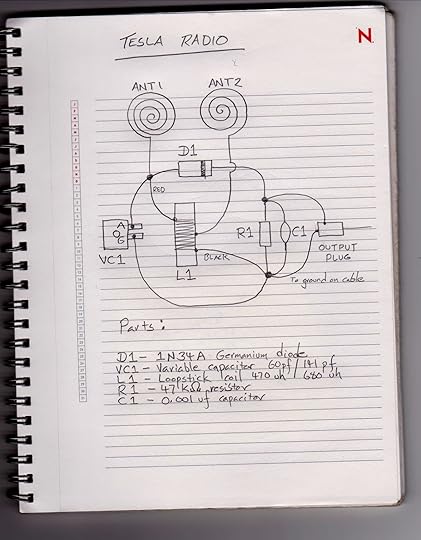 TESLA RADIO
N
ANT1 ANT2
D1
RED
A
O
G
VC1
R1
C1
OUTPUT
PLUG
BLACK
L1
To ground on cable
Parts:
D1 - 1N34A Germanium diode
VC1 - Variable capacitor 60pf / 141 pf
L1 - Loopstick coil 470 uh / 680 uh
R1 - 47 KΩ resistor
C1 - 0.001 uf capacitor